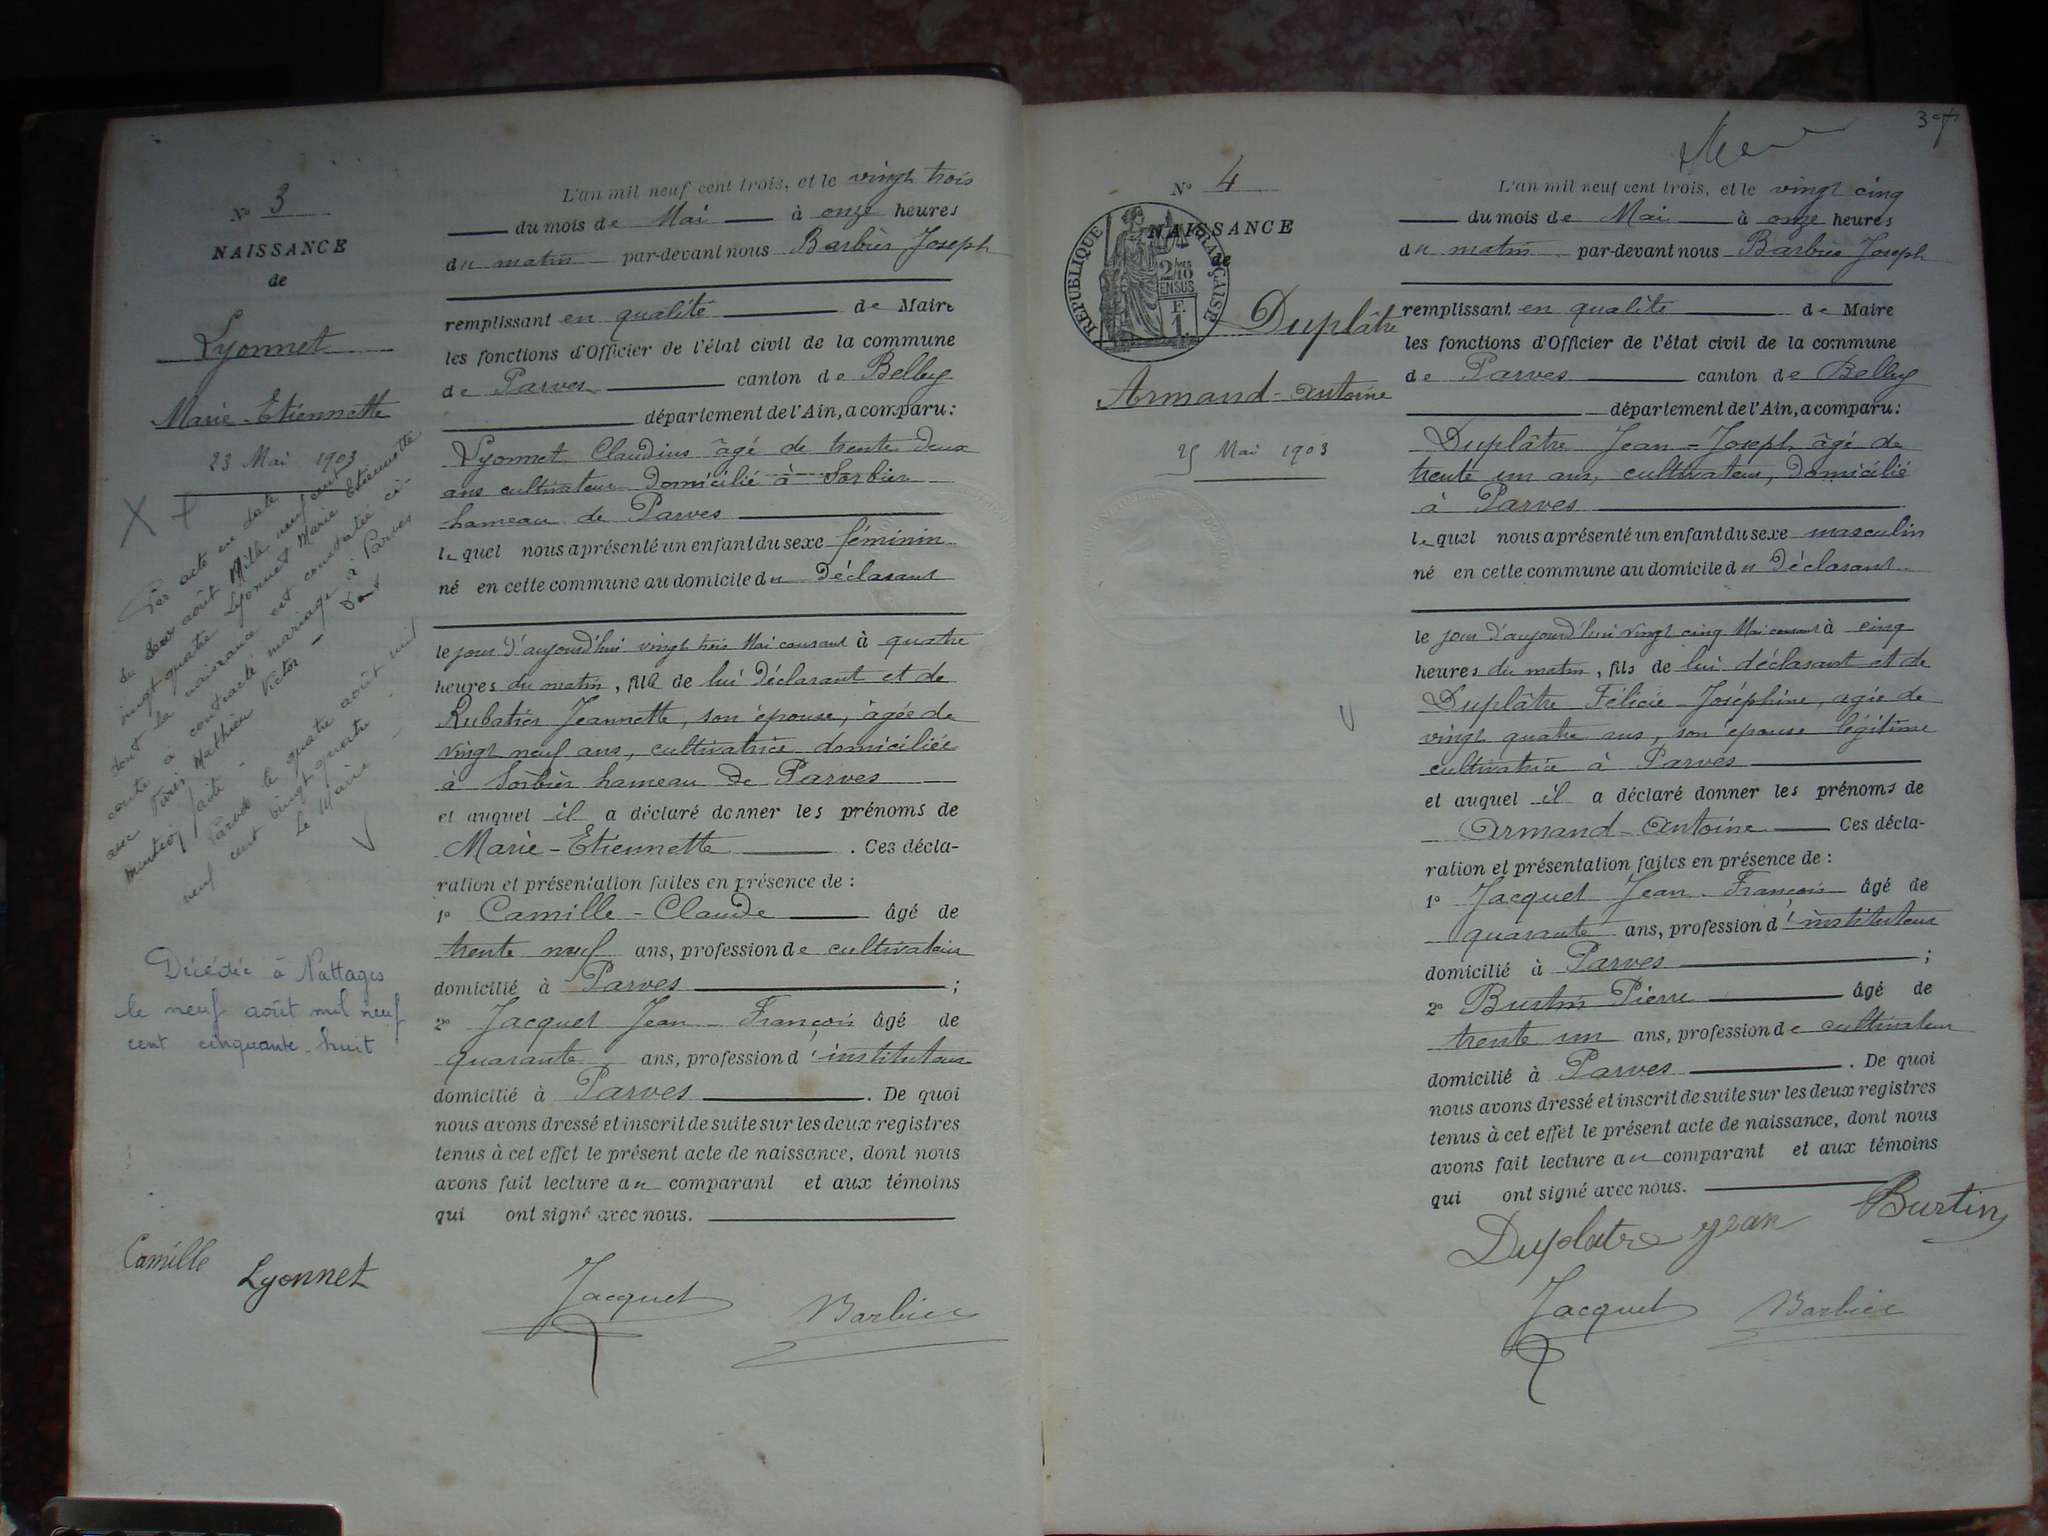 N° 3
NAISSANCE
de
Lyonnet
Marie-Etiennette
23 Mai 1903
Par acte en date
du deux août Mille neuf cent
vingt quatre Lyonnet Marie Etiennette
dont la naissance est constatée ci-
contre a contracté mariage à Parves
avec Mathieu Victor – Dont
Mention faite –
Parves le quatre août mil
neuf cent vingt quatre –
Le Maire
Décédée à Nattages
le neuf août mil neuf
cent cinquante-huit
L'an mil neuf cent trois, et le vingt trois
du mois de Mai à onze heures
du matin par-devant nous Barbier Joseph
remplissant en qualité de Maire
les fonctions d'Officier de l'état civil de la commune
de Parves canton de Belley
département de l'Ain, a comparu:
Lyonnet Claudius âgé de trente deux
ans cultivateur domicilié à Sorbier
hameau de Parves
lequel nous a présenté un enfant du sexe féminin
né en cette commune au domicile du Déclarant
le jour d'aujourd'hui vingt trois Mai courant à quatre
heures du matin, fille de lui Déclarant et de
Rubatier Jeannette, son épouse, âgée de
vingt neuf ans, cultivatrice domiciliée
à Sorbier hameau de Parves
et auquel il a déclaré donner les prénoms de
Marie-Etiennette. Ces décla-
ration et présentation faites en présence de :
1° Camille-Claude âgé de
trente neuf ans, profession de cultivateur
domicilié à Parves ;
2° Jacquet Jean-François âgé de
quarante ans, profession d'instituteur
domicilié à Parves. De quoi
nous avons dressé et inscrit de suite sur les deux registres
tenus à cet effet le présent acte de naissance, dont nous
avons fait lecture au comparant et aux témoins
qui ont signé avec nous.
Camille Lyonnet Jacquet Barbier
N° 4
NAISSANCE
de
RÉPUBLIQUE FRANÇAISE
2/10 EN SUS
F. 1.
Duplâtre
Armand-Antoine
25 Mai 1903
L'an mil neuf cent trois, et le vingt cinq
du mois de Mai à onze heures
du matin par-devant nous Barbier Joseph
remplissant en qualité de Maire
les fonctions d'Officier de l'état civil de la commune
de Parves canton de Belley
département de l'Ain, a comparu:
Duplâtre Jean-Joseph âgé de
trente un ans, cultivateur, domicilié
à Parves
lequel nous a présenté un enfant du sexe masculin
né en cette commune au domicile du Déclarant
le jour d'aujourd'hui vingt cinq Mai courant à cinq
heures du matin, fils de lui déclarant et de
Duplâtre Félicie-Joséphine, agée de
vingt quatre ans, son épouse légitime
cultivatrice à Parves
et auquel il a déclaré donner les prénoms de
Armand-Antoine Ces décla-
ration et présentation faites en présence de :
1° Jacquet Jean-François âgé de
quarante ans, profession d'instituteur
domicilié à Parves ;
2° Burtin Pierre âgé de
trente un ans, profession de cultivateur
domicilié à Parves. De quoi
nous avons dressé et inscrit de suite sur les deux registres
tenus à cet effet le présent acte de naissance, dont nous
avons fait lecture au comparant et aux témoins
qui ont signé avec nous.
Duplatre jean Burtin
Jacquet Barbier